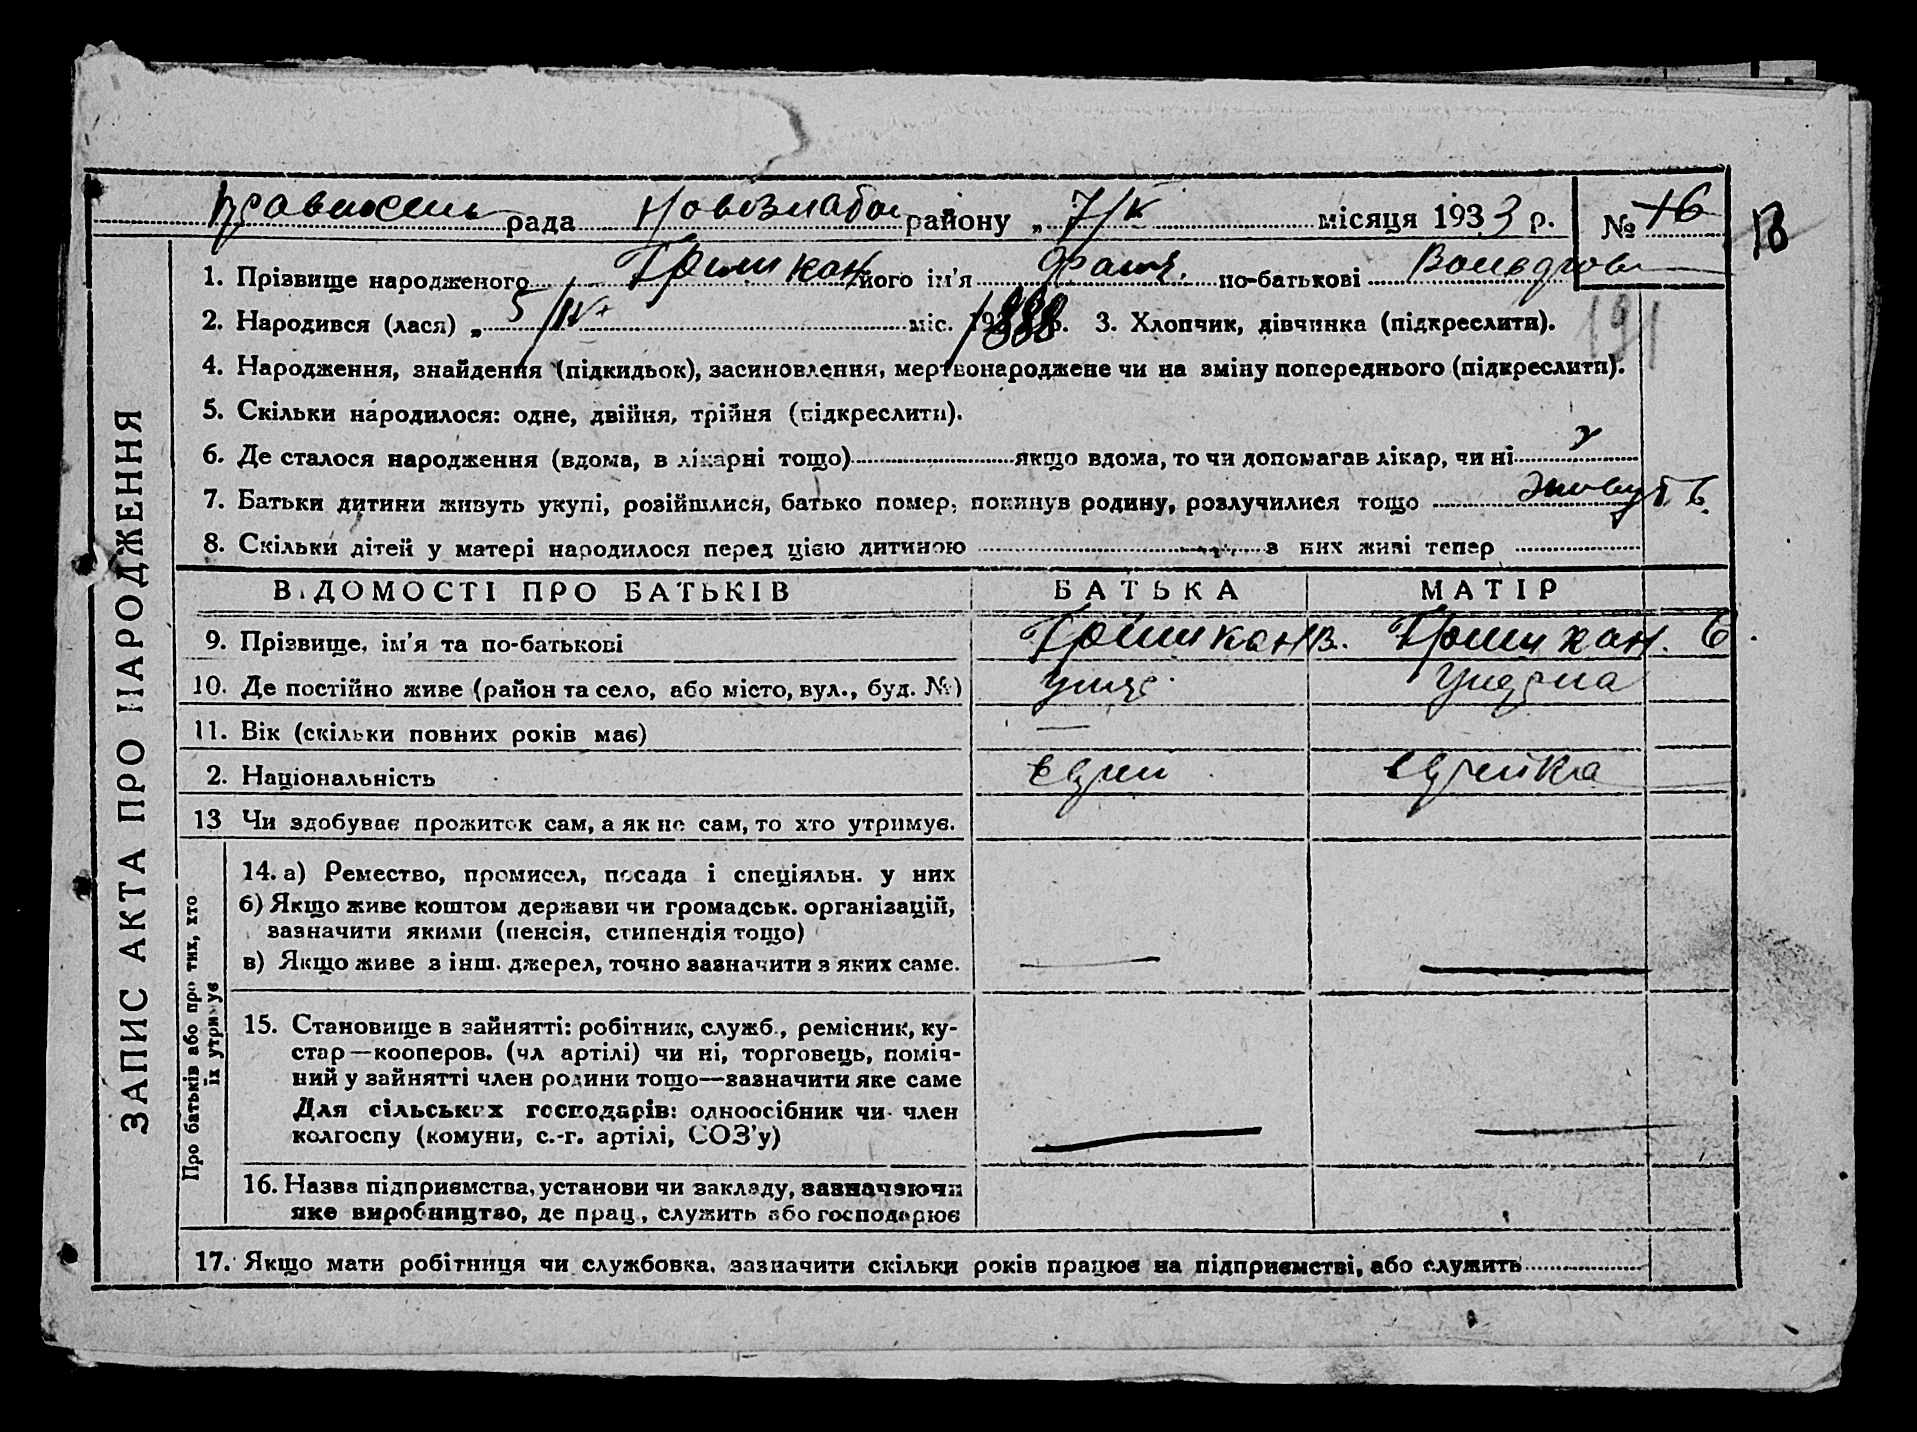 рада Новозлатоп району „ 7/IV місяця 1933 р. № 16
18
1. Прізвище народженого його ім'я по-батькові
2. Народився (лася) „ 5/IV міс. 3. Хлопчик, дівчинка (підкреслити).
191
4. Народження, знайдення (підкидьок), засиновлення, мертвонароджене чи на зміну попереднього (підкреслити).
5. Скільки народилося: одне, двійня, трійня (підкреслити).
6. Де сталося народження (вдома, в лікарні тощо) якщо вдома, то чи допомагав лікар, чи ні
7. Батьки дитини живуть укупі, розійшлися, батько помер, покинув родину, розлучилися тощо живуть
8. Скільки дітей у матері народилося перед цією дитиною з них живі тепер
ЗАПИС АКТА ПРО НАРОДЖЕННЯ
ВІДОМОСТІ ПРО БАТЬКІВ БАТЬКА МАТІР
9. Прізвище, ім'я та по-батькові
10. Де постійно живе (район та село, або місто, вул., буд. №)
11. Вік (скільки повних років має) —
2. Національність еврей еврейка
13 Чи здобуває прожиток сам, а як не сам, то хто утримує.
Про батьків або про тих, хто
їх утримує
14. а) Ремество, промисел, посада і спеціяльн. у них
б) Якщо живе коштом держави чи громадськ. організацій,
зазначити якими (пенсія, стипендія тощо)
в) Якщо живе з інш. джерел, точно зазначити з яких саме. — —
15. Становище в зайнятті: робітник, служб., ремісник, ку-
стар—кооперов. (чл артілі) чи ні, торговець, поміч-
ний у зайнятті член родини тощо—зазначити яке саме
Для сільських господарів: одноосібник чи член
колгоспу (комуни, с.-г. артілі, СОЗ'у) — —
16. Назва підприємства, установи чи закладу, зазначаючи
яке виробництво, де прац., служить або господарює
17. Якщо мати робітниця чи службовка, зазначити скільки років працює на підприємстві, або служить